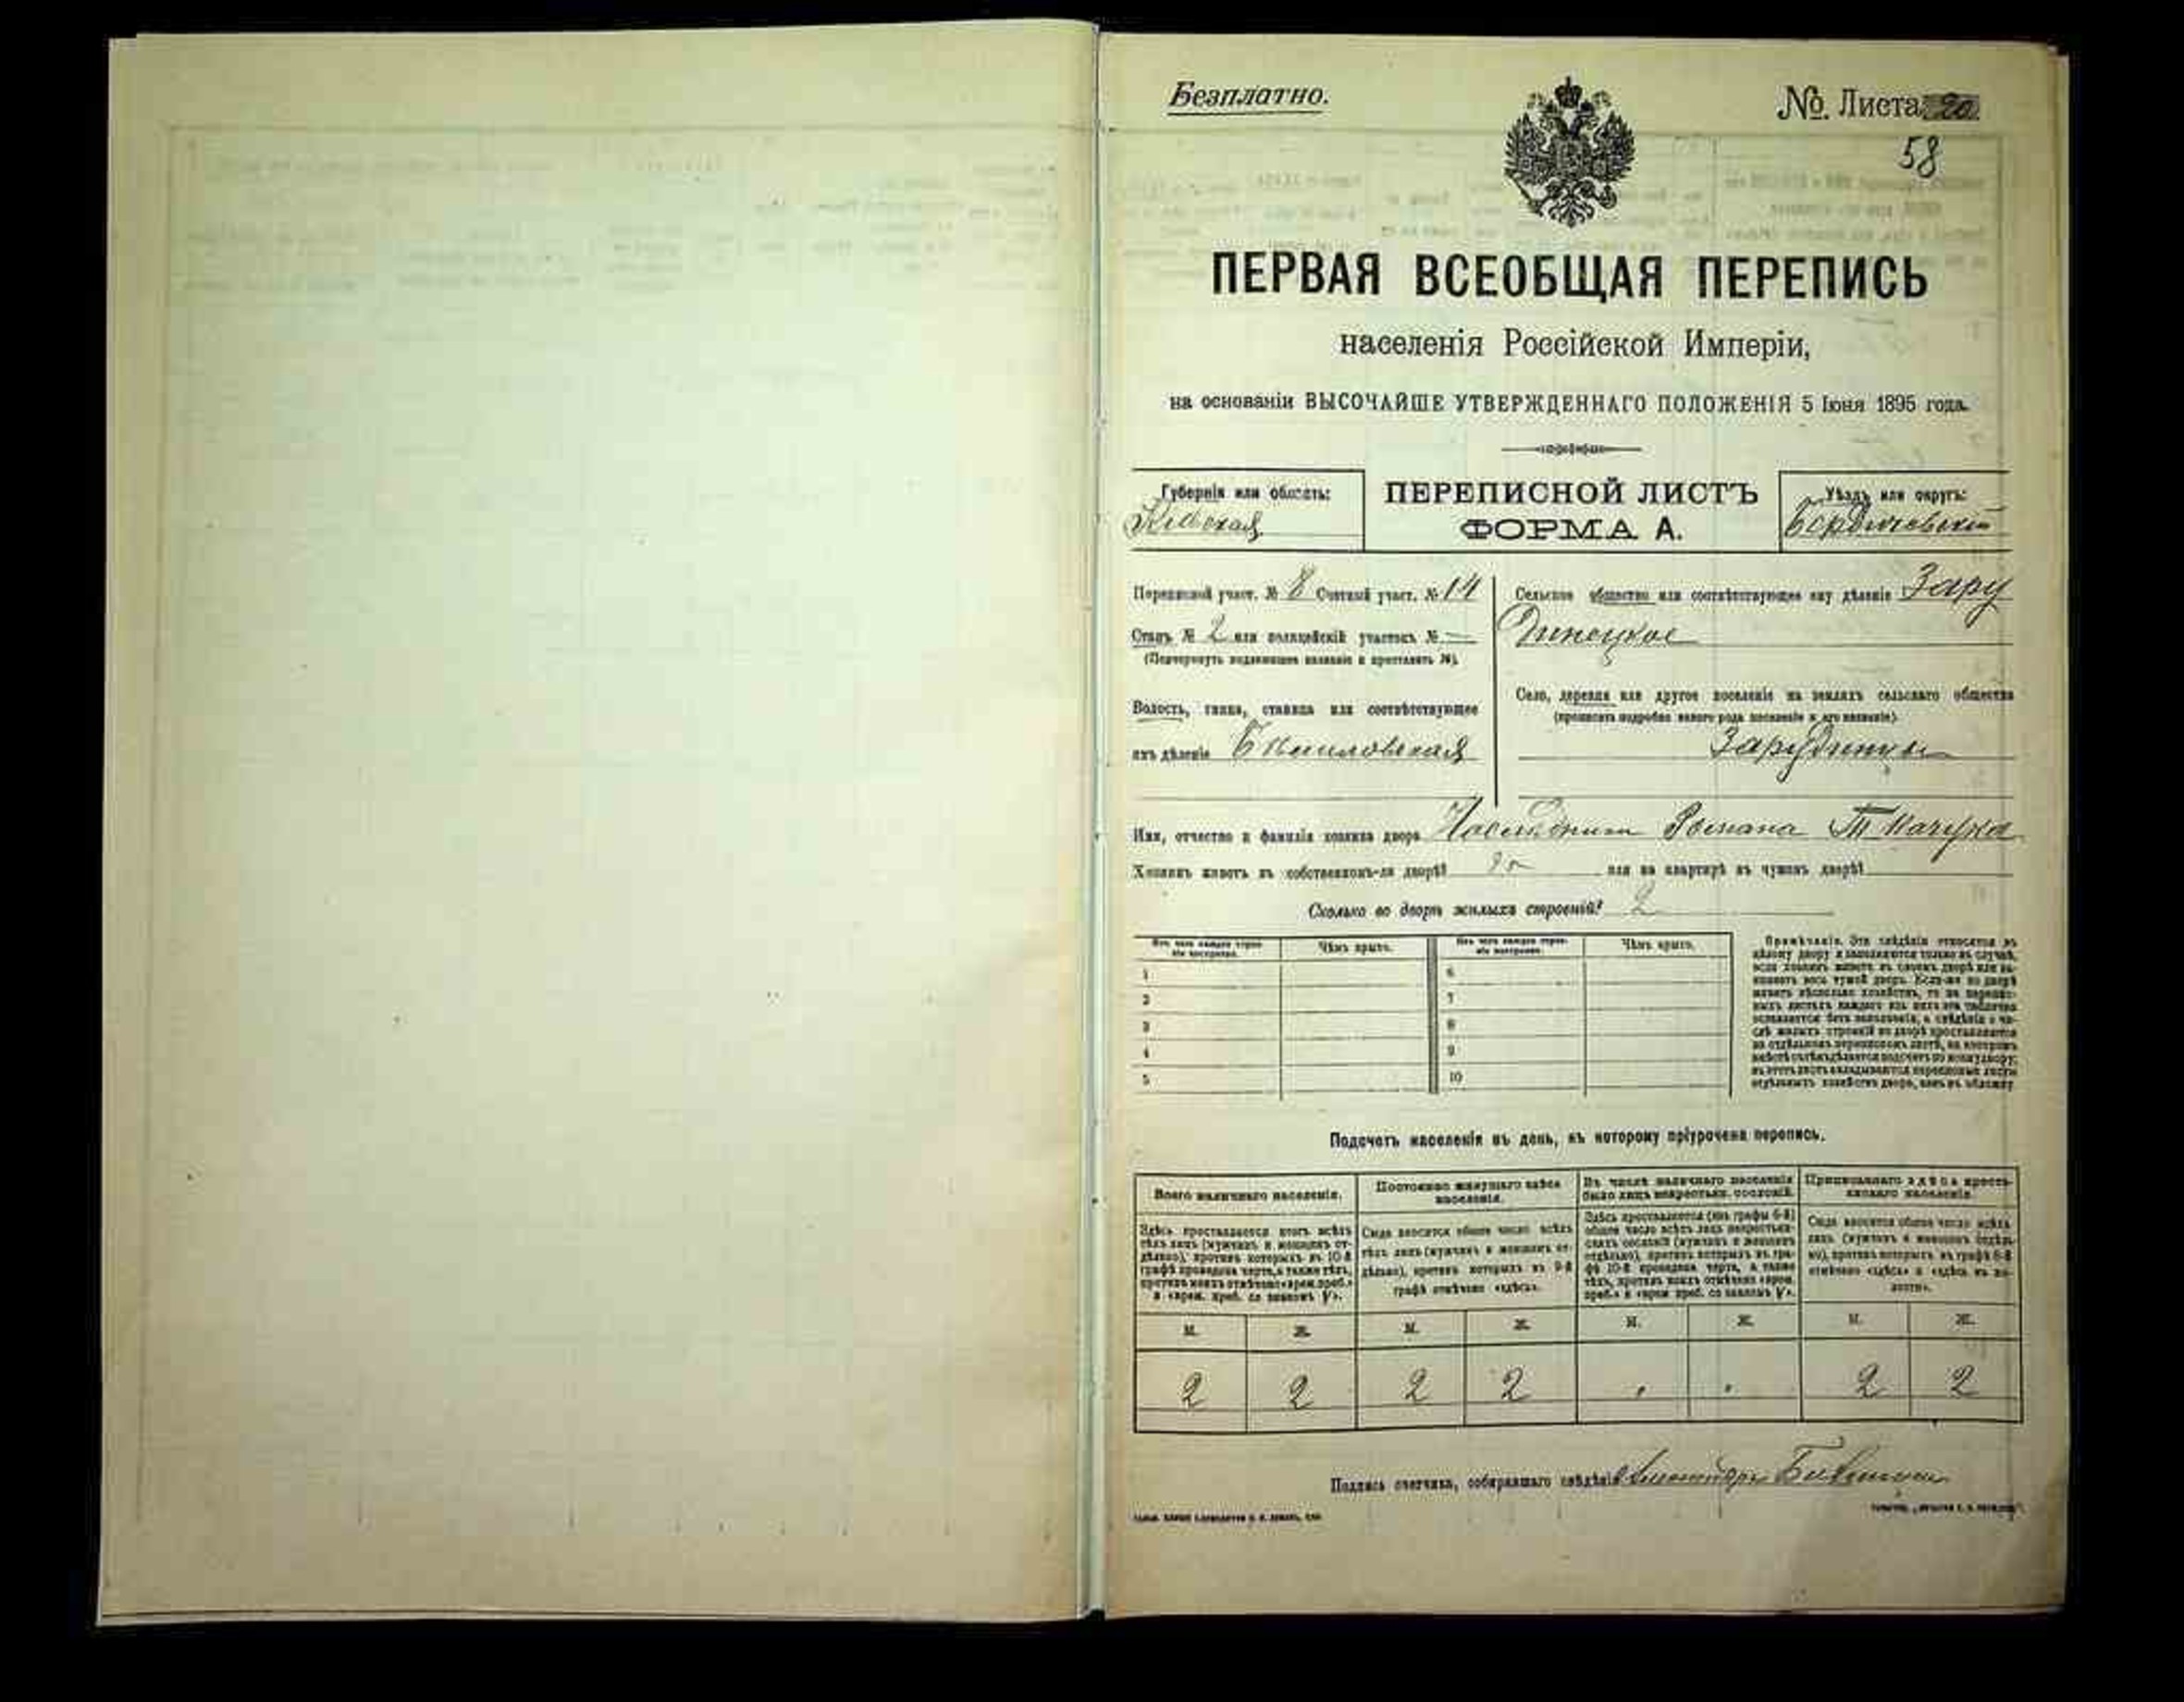 Безплатно.
№. Листа 20
58
ПЕРВАЯ ВСЕОБЩАЯ ПЕРЕПИСЬ
населенія Россійской Имперіи,
на основаніи ВЫСОЧАЙШЕ УТВЕРЖДЕННАГО ПОЛОЖЕНІЯ 5 Іюня 1895 года.
Губернія или область:
Кіевская
ПЕРЕПИСНОЙ ЛИСТЪ
ФОРМА А.
Уѣздъ или округъ:
Бердичевскій
Переписной участ. № 8 Счетный участ. № 14
Станъ № 2 или полицейскій участокъ № —
(Подчеркнуть подлежащее названіе и проставить №).
Волость, гмина, станица или соотвѣтствующее
имъ дѣленіе
Сельское общество или соотвѣтствующее ему дѣленіе Зару
динецкое
Село, деревня или другое поселеніе на земляхъ сельскаго общества
(прописать подробно какого рода поселеніе и его названіе).
Зарудинцы
Имя, отчество и фамилія хозяина двора Романа Ткачука
Хозяинъ живетъ въ собственномъ-ли дворѣ? или на квартирѣ въ чужомъ дворѣ?
Сколько во дворѣ жилыхъ строеній? 2
Изъ чего каждое строеніе построено.
Чѣмъ крыто.
Изъ чего каждое строеніе построено.
Чѣмъ крыто.
1
2
3
4
5
6
7
8
9
10
Примѣчаніе. Эти свѣдѣнія относятся къ
цѣлому двору и заполняются только въ случаѣ,
если хозяинъ живетъ въ своемъ дворѣ или за-
нимаетъ весь чужой дворъ. Если-же во дворѣ
имѣетъ нѣсколько хозяйствъ, то на перепис-
ныхъ листахъ каждаго изъ нихъ эта табличка
оставляется безъ заполненія, а свѣдѣнія о чи-
слѣ жилыхъ строеній во дворѣ проставляются
на отдѣльномъ переписномъ листѣ, на которомъ
вмѣстѣ съ тѣмъ дѣлается подсчетъ по всему двору;
въ этотъ листъ вкладываются переписные листы
отдѣльныхъ хозяйствъ двора, какъ въ обложку
Подсчетъ населенія въ день, къ которому пріурочена перепись.
Всего наличнаго населенія.
Здѣсь проставляется итогъ всѣхъ
тѣхъ лицъ (мужчинъ и женщинъ от-
дѣльно), противъ которыхъ въ 10-й
графѣ проведена черта, а также тѣхъ,
противъ коихъ отмѣчено «врем. преб.»
и «врем. преб. со знакомъ V».
Постоянно живущаго здѣсь
населенія.
Сюда вносится общее число всѣхъ
тѣхъ лицъ (мужчинъ и женщинъ от-
дѣльно), противъ которыхъ въ 9-й
графѣ отмѣчено «здѣсь».
Въ числѣ наличнаго населенія
было лицъ некрестьян. сословій.
Здѣсь проставляется (изъ графы 6-й)
общее число всѣхъ лицъ некрестьян-
скихъ сословій (мужчинъ и женщинъ
отдѣльно), противъ которыхъ въ гра-
фѣ 10-й проведена черта, а также
тѣхъ, противъ коихъ отмѣчено «врем.
преб.» и «врем. преб. со знакомъ V».
Приписаннаго здѣсь кресть-
янскаго населенія.
Сюда вносится общее число всѣхъ
лицъ (мужчинъ и женщинъ отдѣль-
но), противъ которыхъ въ графѣ 8-й
отмѣчено «здѣсь» и «здѣсь въ во-
лости».
М. Ж. М. Ж. М. Ж. М. Ж.
2 2 2 2 2 2
Подпись счетчика, собиравшаго свѣдѣнія